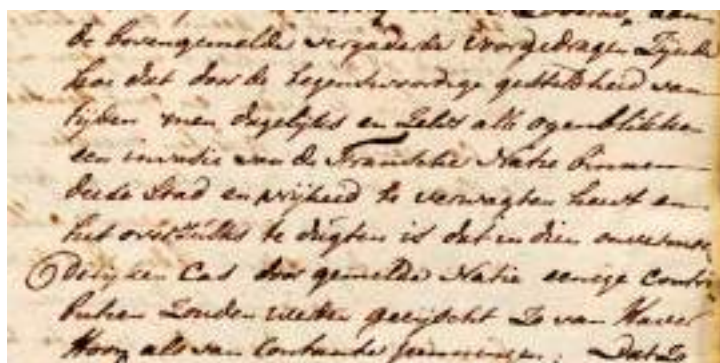 de bovengemelde vergaderde voorgedragen Zijnde
hoe dat door de tegenwoordige gesteltheid van
tijden men dagelijks en Zelvs alle ogenblikken
een invasie van de Fransche Natie binnen
deese Stad en vrijheid te verwagten heeft en
het overZulks te dugten is dat in dien onverm
Cas door gemelde Natie eenige Contri
butien Zouden werden geeijscht Zo van Haver
Hooy als van Contande penningen,